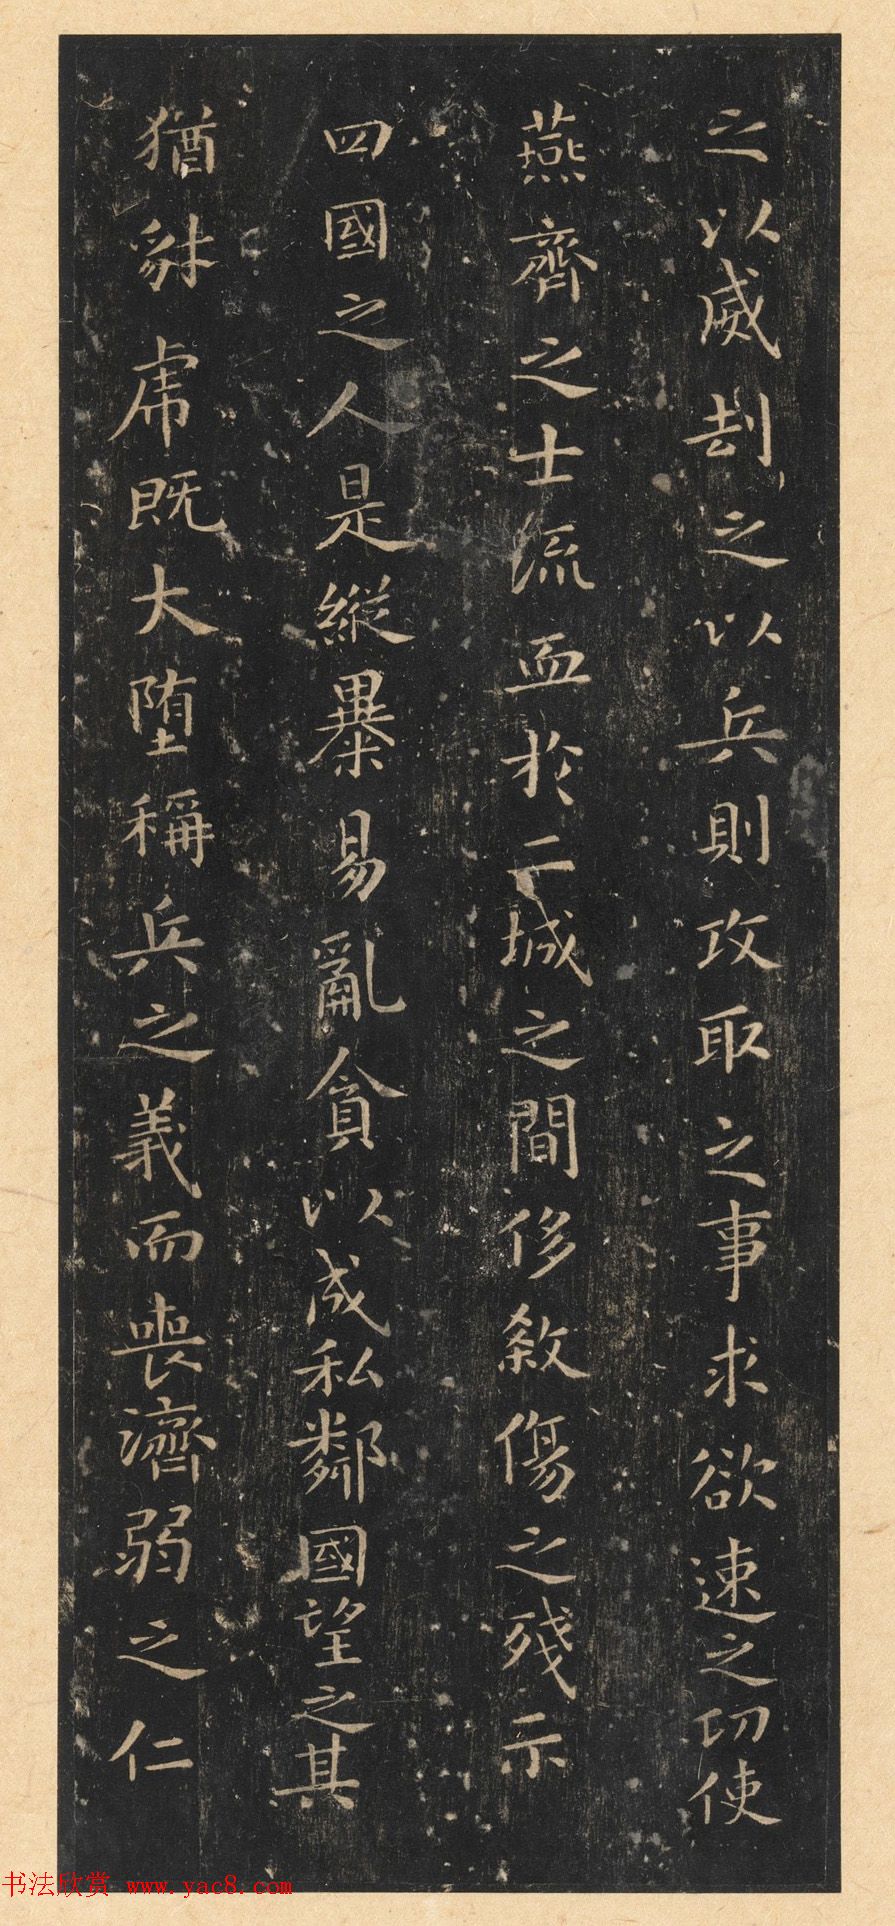 之以威刦之以兵則攻取之事求欲速之功使
燕齊之士流血於二城之間侈敘傷之殘示
四國之人是縱暴易亂貪以成私鄰國望之其
猶豺虎既大墮稱兵之義而喪濟弱之仁
书法欣赏 www.yac8.com